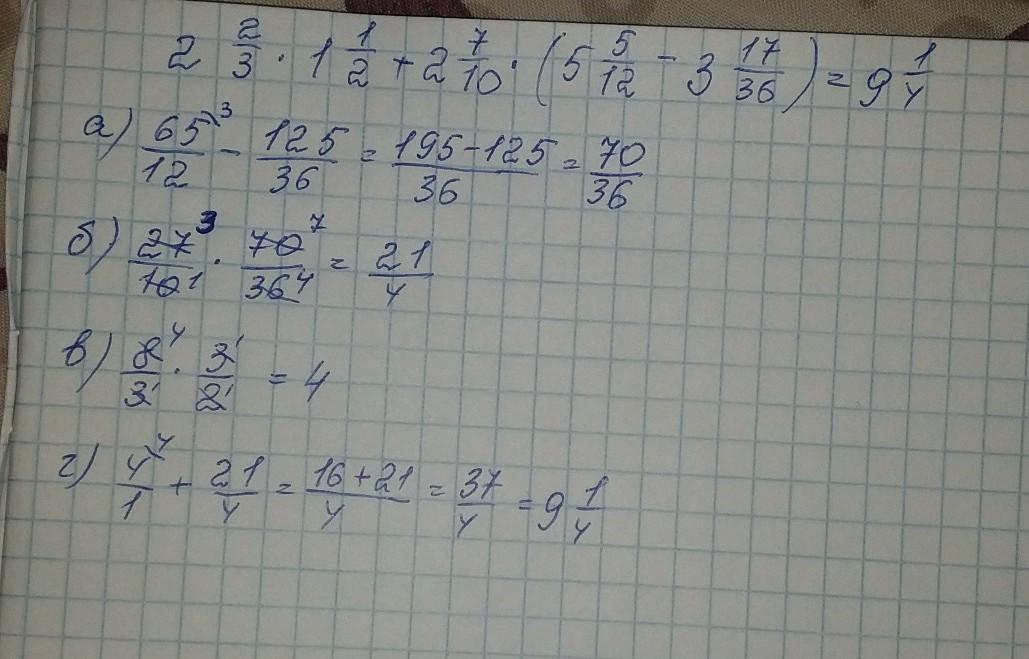 2 2/3 · 1 1/2 + 2 7/10 · (5 5/12 - 3 17/36) = 9 1/4
а) 65/12 ⁾³ - 125/36 = 195-125/36 = 70/36
б) 27³/10¹ · 70⁷/36⁴ = 21/4
в) 8⁴/3¹ · 3¹/2¹ = 4
г) 4/1 ⁾⁴ + 21/4 = 16+21/4 = 37/4 = 9 1/4